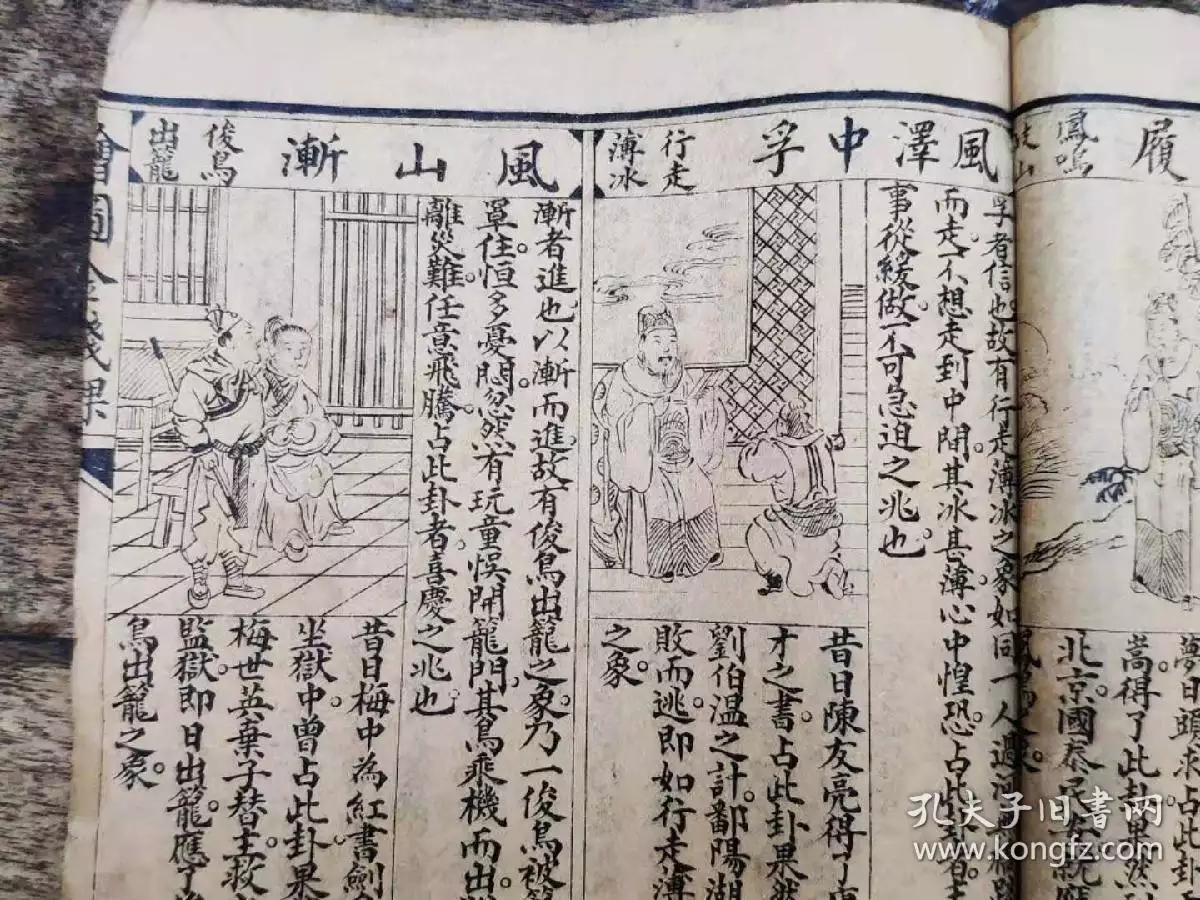 履
鳳鳴
山
占此卦
嵩得了此卦果然
北京國泰民
風澤中孚
行走
薄冰
孚者信也故有行是薄冰之象如同一人過
而走不想走到中間其冰甚薄心中惶恐占此卦者
事從緩做不可急迫之兆也
昔日陳友亮得了
才之書占此卦果然
劉伯温之計鄱陽湖
敗而逃即如行走薄
之象
風山漸
俊鳥
出籠
漸者進也以漸而進故有俊鳥出籠之象乃一俊鳥被籠
罩住恒多憂悶忽然有玩童悞開籠門其鳥乘機而出
離災難任意飛騰占此卦者喜慶之兆也
昔日梅中為紅書劍
坐獄中曾占此卦果
梅世英棄子替主救
監獄即日出籠應了俊
鳥出籠之象
繪圖金錢課
孔夫子旧书网
www.kongfz.com